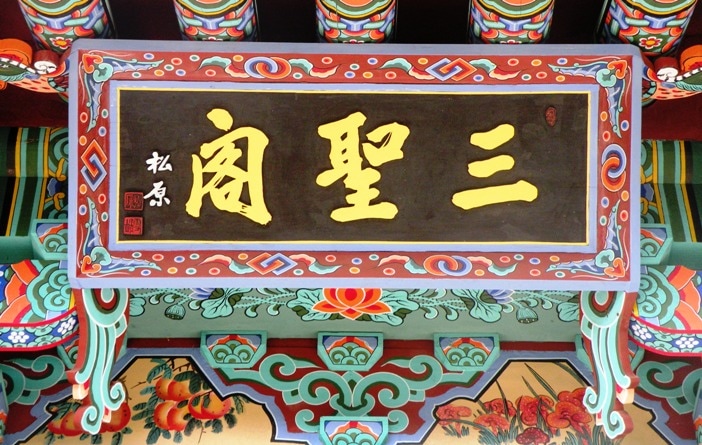 三聖閣
私原